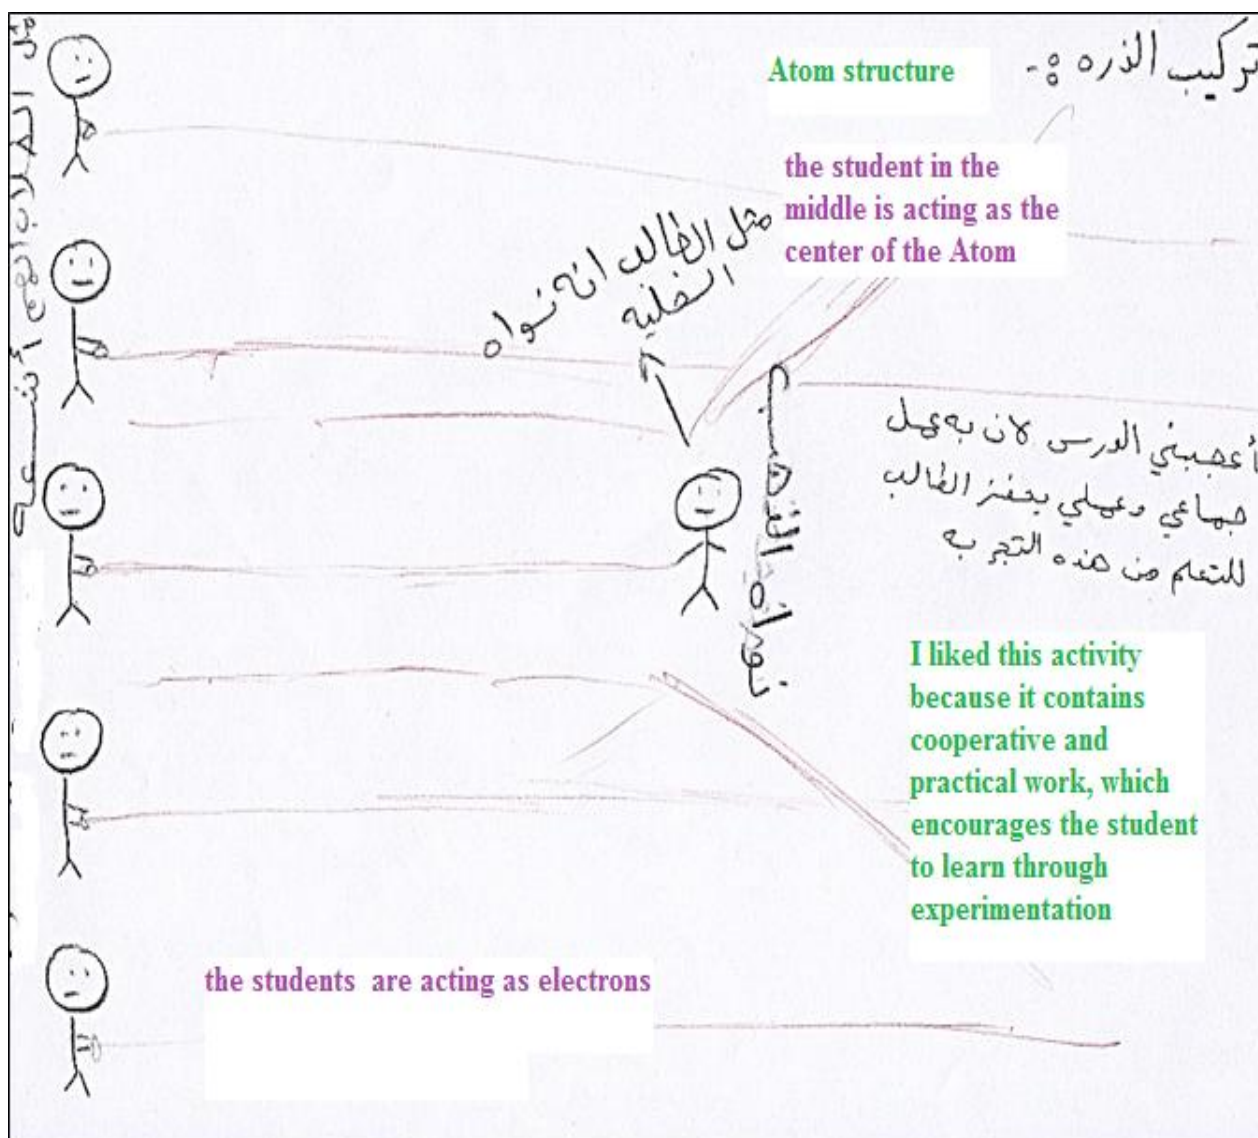 تركيب الذره :-
Atom structure
the student in the
middle is acting as the
center of the Atom
مثل الطالب انه نواه
الخليه
نواه الذهب
أعجبني الدرس لان به عمل
جماعي وعملي يحفز الطالب
للتعلم من هذه التجربه
I liked this activity
because it contains
cooperative and
practical work, which
encourages the student
to learn through
experimentation
the students are acting as electrons
مثل الطلاب الوهي أشعه